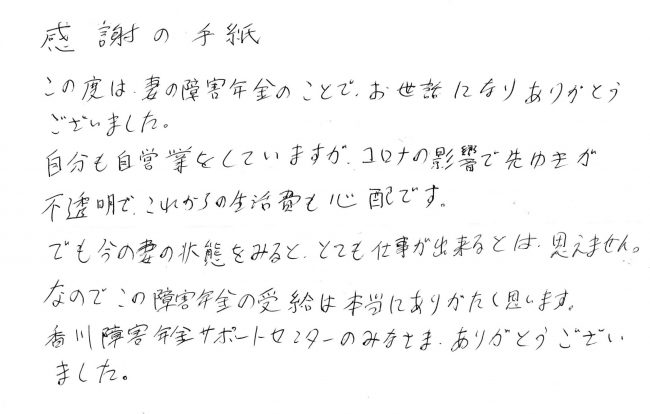 感謝の手紙
この度は、妻の障害年金のことで、お世話になりありがとう
ございました。
自分も自営業をしていますが、コロナの影響で先ゆきが
不透明で、これからの生活費も心配です。
でも今の妻の状態をみると、とても仕事が出来るとは、思えません。
なのでこの障害年金の受給は本当にありがたく思います。
香川障害年金サポートセンターのみなさま、ありがとうござい
ました。